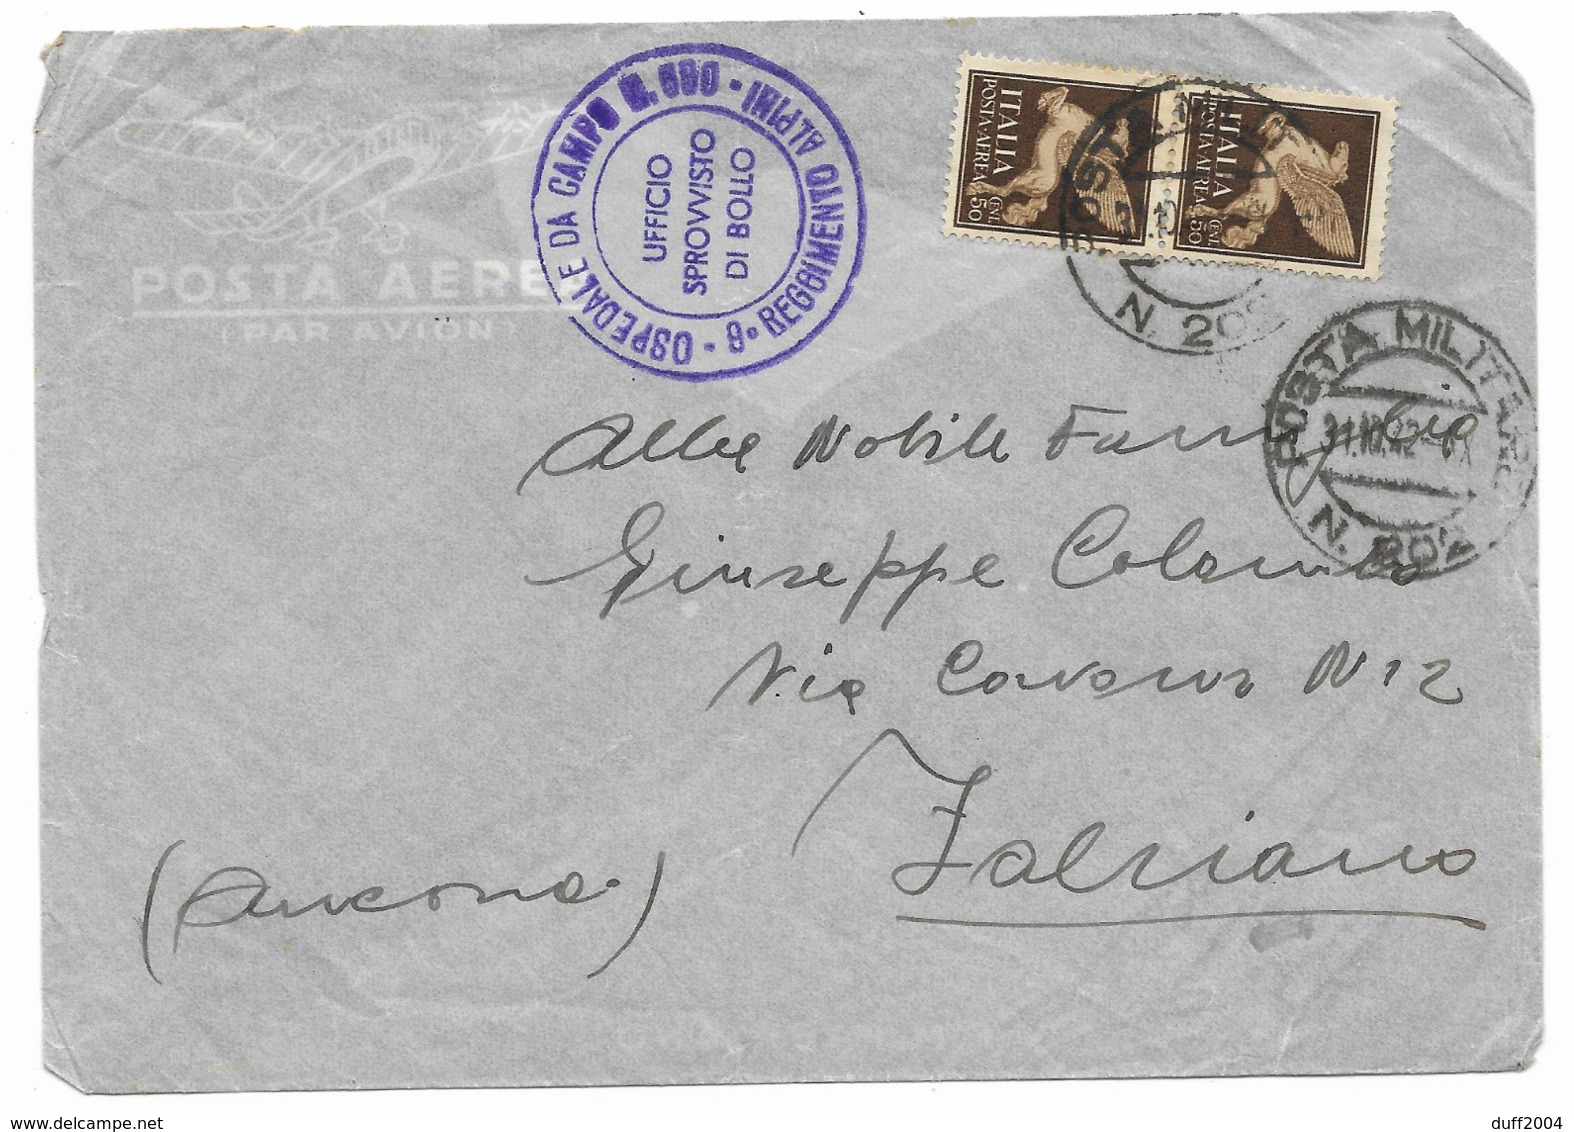 POSTA AEREA
(PAR AVION)
OSPEDALE DA CAMPO N. 630 - 8° REGGIMENTO ALPINI
UFFICIO
SPROVVISTO
DI BOLLO
ITALIA
POSTA AEREA
CENT. 50
ITALIA
POSTA AEREA
CENT. 50
POSTA MILITARE
N. 202
POSTA MILITARE
31.10.42
N. 202
Alla Nobile Famiglia
Giuseppe Colombo
Via Cavour N 12
Fabriano
(Ancona)
www.delcampe.net
duff2004